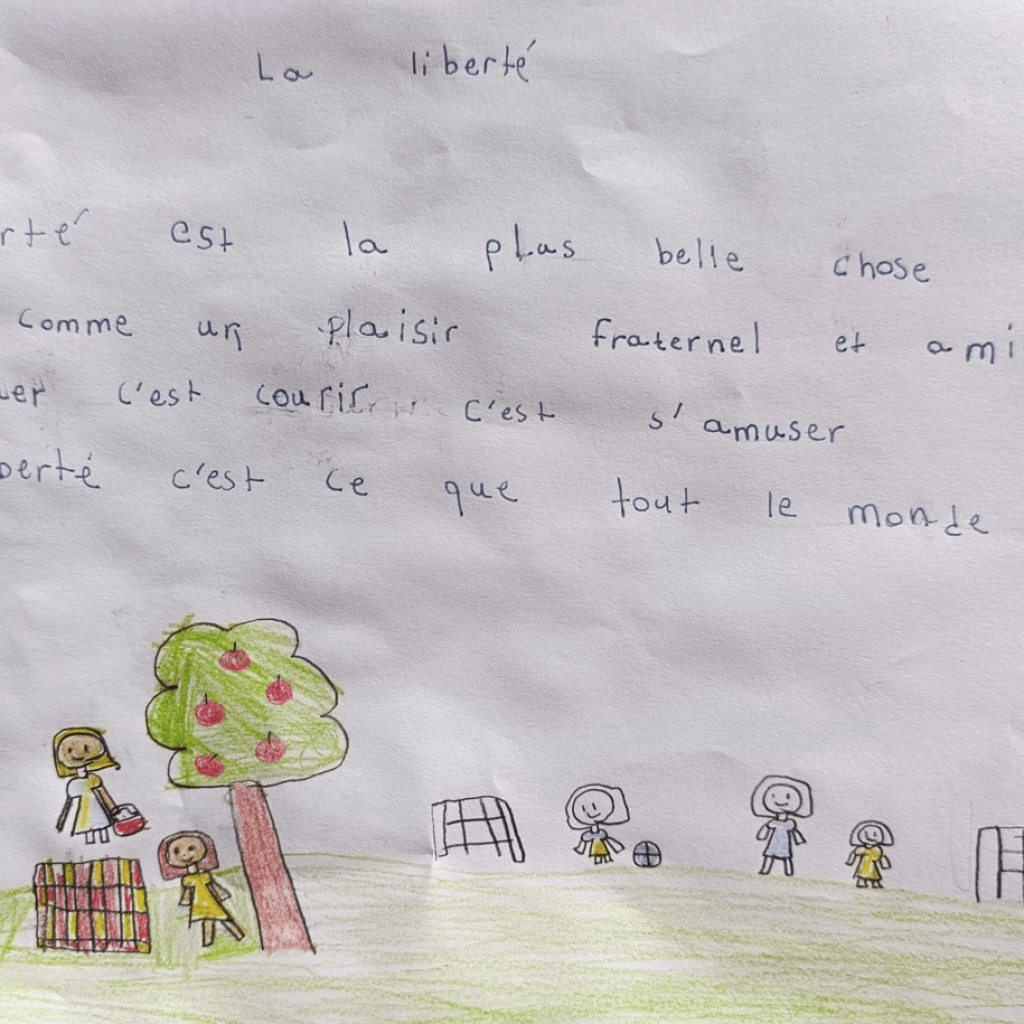 La liberté
rté est la plus belle chose
comme un plaisir fraternel et ami
er c'est courir c'est s'amuser
berté c'est ce que tout le monde